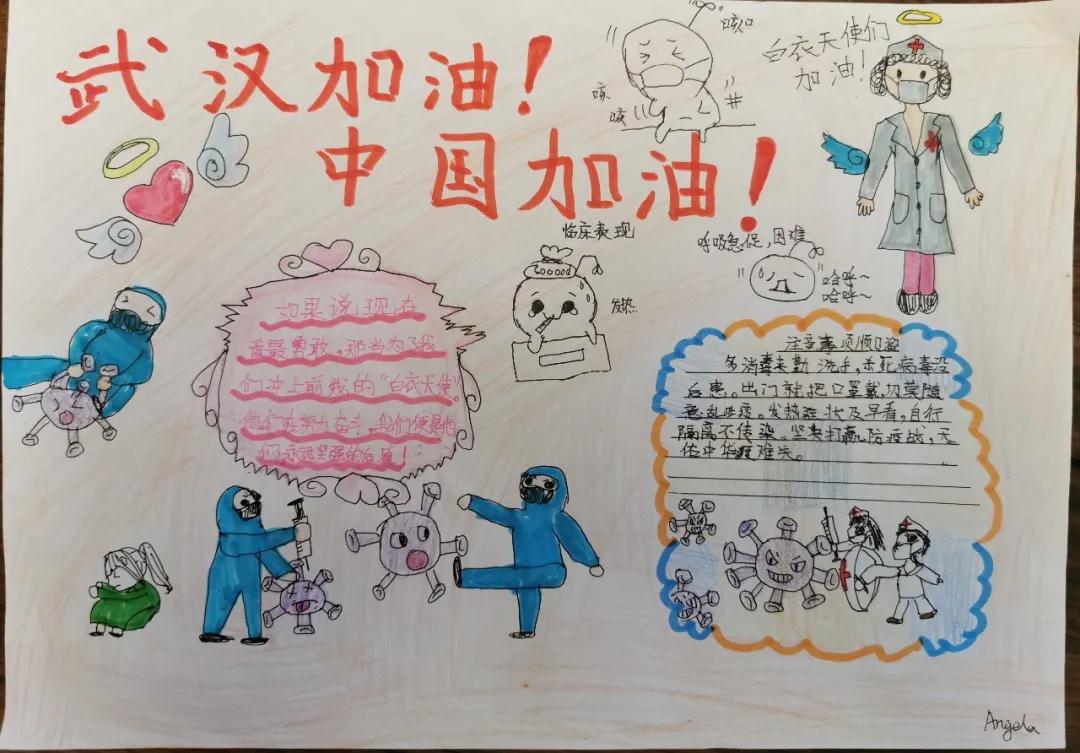 武汉加油！
中国加油！
咳
咳
白衣天使们
加油！
临床表现
发热
呼吸急促，困难
哈呼～
哈呼～
如果说现在
谁最勇敢，那当为了我
们冲上前线的“白衣天使”。
他们在努力奋斗，我们便是他
们永远坚强的后盾！
注意事项顺口溜
多消毒来勤洗手，杀死病毒没
后患。出门就把口罩戴，切莫随
意乱吐痰。发热症状及早看，自行
隔离不传染。坚决打赢防疫战，天
佑中华疫难失。
Angela